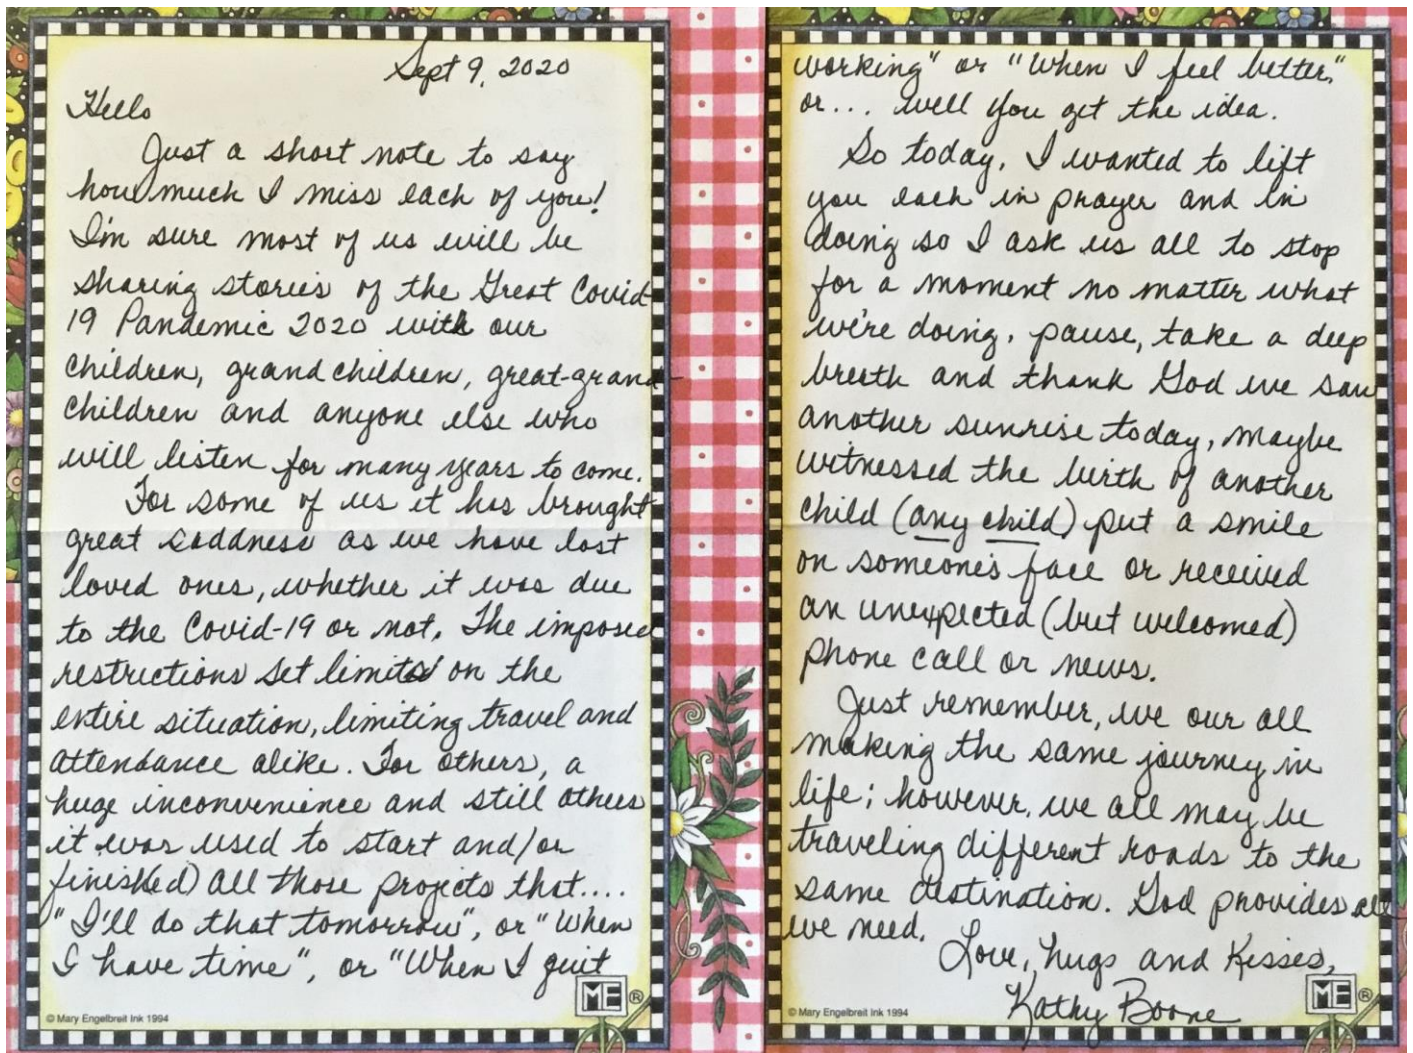 Sept 9, 2020
Hello
Just a short note to say
how much I miss each of you!
I'm sure most of us will be
sharing stories of the Great Covid-
19 Pandemic 2020 with our
children, grandchildren, great-grand-
children and anyone else who
will listen for many years to come.
For some of us it has brought
great saddness as we have lost
loved ones, whether it was due
to the Covid-19 or not. The imposed
restrictions set limits on the
entire situation, limiting travel and
attendance alike. For others, a
huge inconvenience and still others
it was used to start and/or
finish(ed) all those projects that....
"I'll do that tomorrow", or "When
I have time", or "When I quit
ME ®
© Mary Engelbreit Ink 1994
working" or "When I feel better,"
or... well you get the idea.
So today, I wanted to lift
you each in prayer and in
doing so I ask us all to stop
for a moment no matter what
we're doing, pause, take a deep
breath and thank God we saw
another sunrise today, maybe
witnessed the birth of another
child (any child) put a smile
on someone's face or received
an unexpected (but welcomed)
phone call or news.
Just remember, we our all
making the same journey in
life; however, we all may be
traveling different roads to the
same destination. God provides all
we need.
Love, hugs and Kisses,
Kathy Boone
ME ®
© Mary Engelbreit Ink 1994